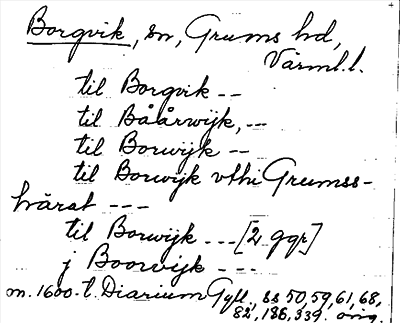 Borgvik, sn, Grums hd,
Värml.l.
til Borgvik --
til Båårwijk, --
til Borwijk --
til Borwijk vthi Grumss-
härat ---
til Borwijk --- [2 ggr]
j Boorvijk ---
m. 1600-t. Diarium Gyll., ss 50, 59, 61, 68,
82, 186, 339. orig.